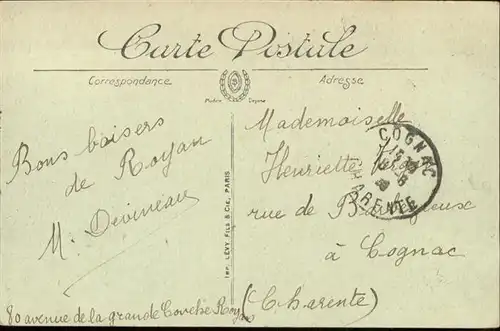 Carte Postale
Correspondance
Adresse
Bons baisers
de Royan
M. Devineau
80 avenue de la grande Conche Royan
IMP. LÉVY FILS & CIE, PARIS
Mademoiselle
Henriette
rue de
à Cognac
(Charente)
COGNAC
CHARENTE